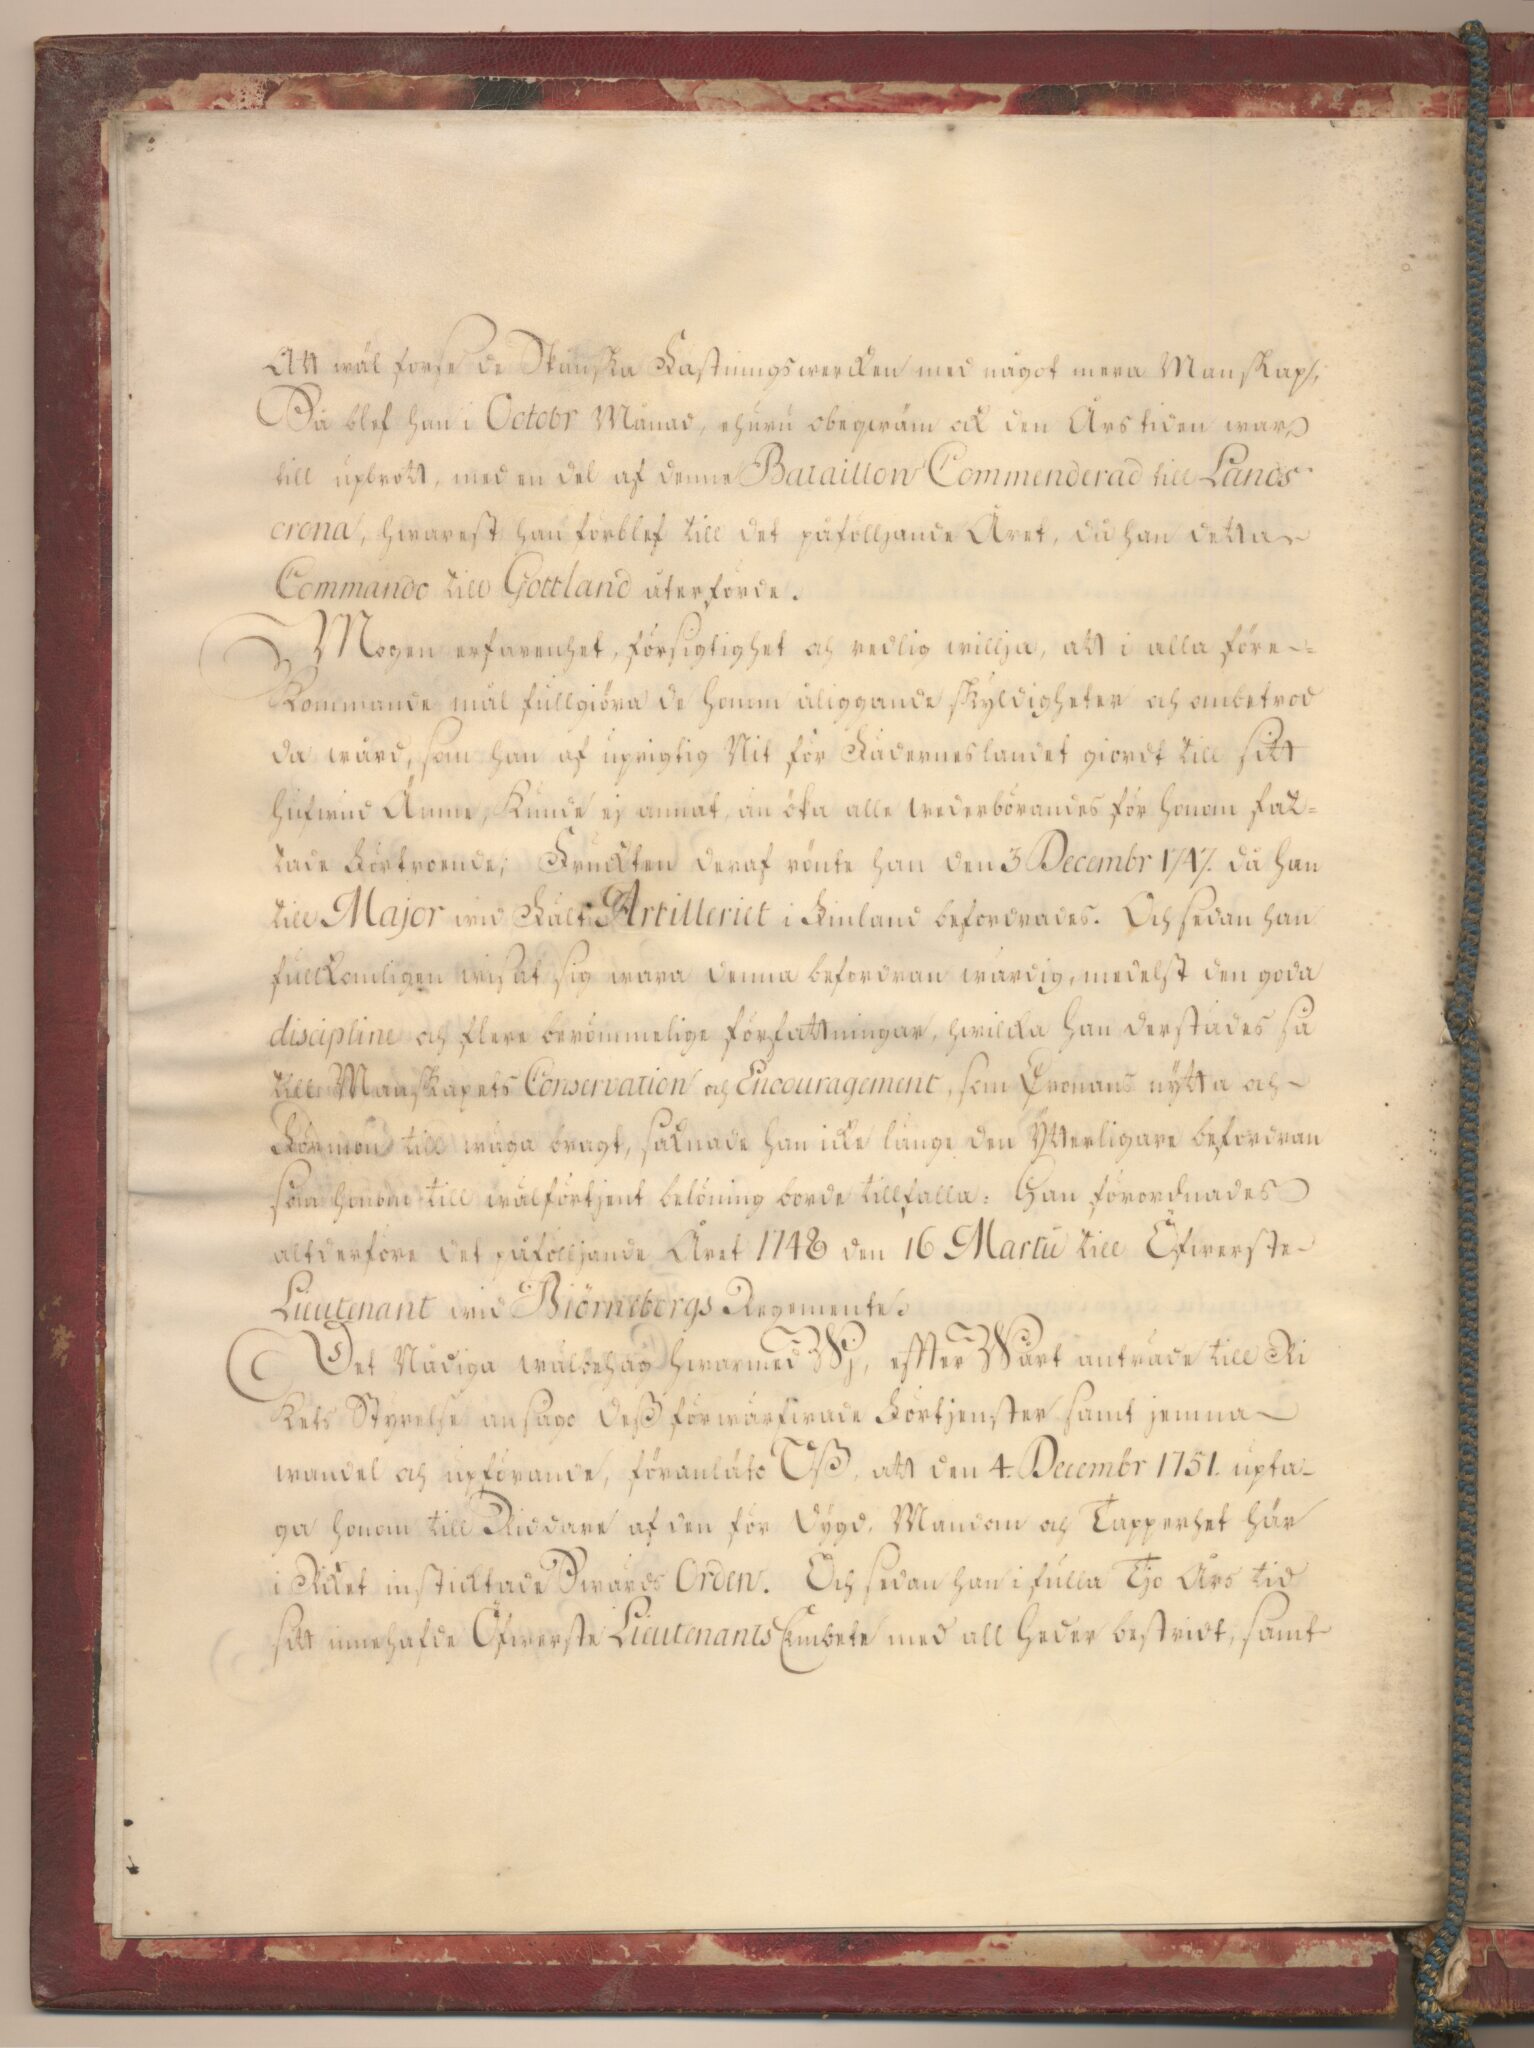 Att wäl förse de Skånska Fästningswercken med något mera Manskap,
Så blef han i Octobr Månad, ehuru obeqwäm ock den Årstiden war
till upbrott, med en del af denne Bataillon Commenderad till Lands
crona, hwarest han förblef till det påfölljande Året, då han detta
Commando till Gottland återförde.
Mogen erfarenhet, försigtighet och redlig willja, att i alla före=
kommande mål fullgiöra de honom åliggande skyldigheter och ombetrod
da wård, som han af uprigtig Nit för Fäderneslandet giordt till sitt
hufwud Ämne, kunde ej annat, än öka alle wederbörandes för honom fat=
tade Förtroende; Fruckten deraf rönte han den 3 Decembr 1747. då han
till Major wid Fält Artilleriet i Finland befordrades. Och sedan han
fullkomligen wisat sig wara denna befordran wärdig, medelst den goda
discipline och flere berömmelige författningar, hwilcka han derstädes så
till Manskapets Conservation och Encouragement, som Cronans nytta och
Förmon till wäga bragt, saknade han icke länge den ytterligare befordran
som honom till wälförtjent belöning borde tillfalla: Han förordnades
altderföre det påfölljande Året 1748 den 16 Martii till Öfwerste
Lieutenant wid Biörneborgs Regemente.
Det Nådiga wälbehag hwarmed Wj, effter Wårt anträde till Ri
kets Styrelse ansågo deß förwärfwade Förtjenster samt jemna
wandel och upförande, föranläto Oß, att den 4. Decembr 1751. upta
ga honom till Riddare af den för Dygd, Mandom och Tapperhet här
i Riket instichtade Swärds Orden. Och sedan han i fulla Tjo Års tid
sitt innehafde Öfwerste Lieutenants Embete med all Heder bestridt, samt